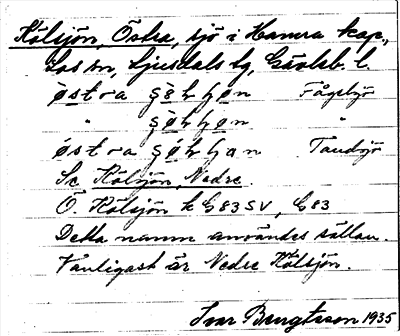 Kölsjön, Östra, sjö i Hamra kap.,
Los sn, Ljusdals tg, Gävleb. l.
östra Fågelsjö
" "
östra Tandsjö
Se Kölsjön, Nedre.
Ö. Kölsjön k G83SV, G83
Detta namn användes sällan.
Vanligast är Nedre Kölsjön.
Ivar Bengtsson 1935